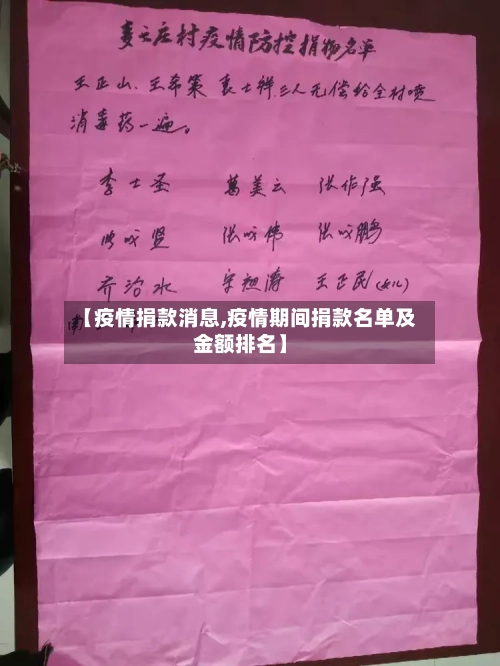 庄村疫情防控捐物名单
王正山、王希策 袁士祥三人无偿给全村喷
消毒药一遍。
李士圣 葛美云 张作强
贤 张成伟 张成鹏
乔治水 宋祖涛 王正民(女儿)
南
【疫情捐款消息,疫情期间捐款名单及
金额排名】